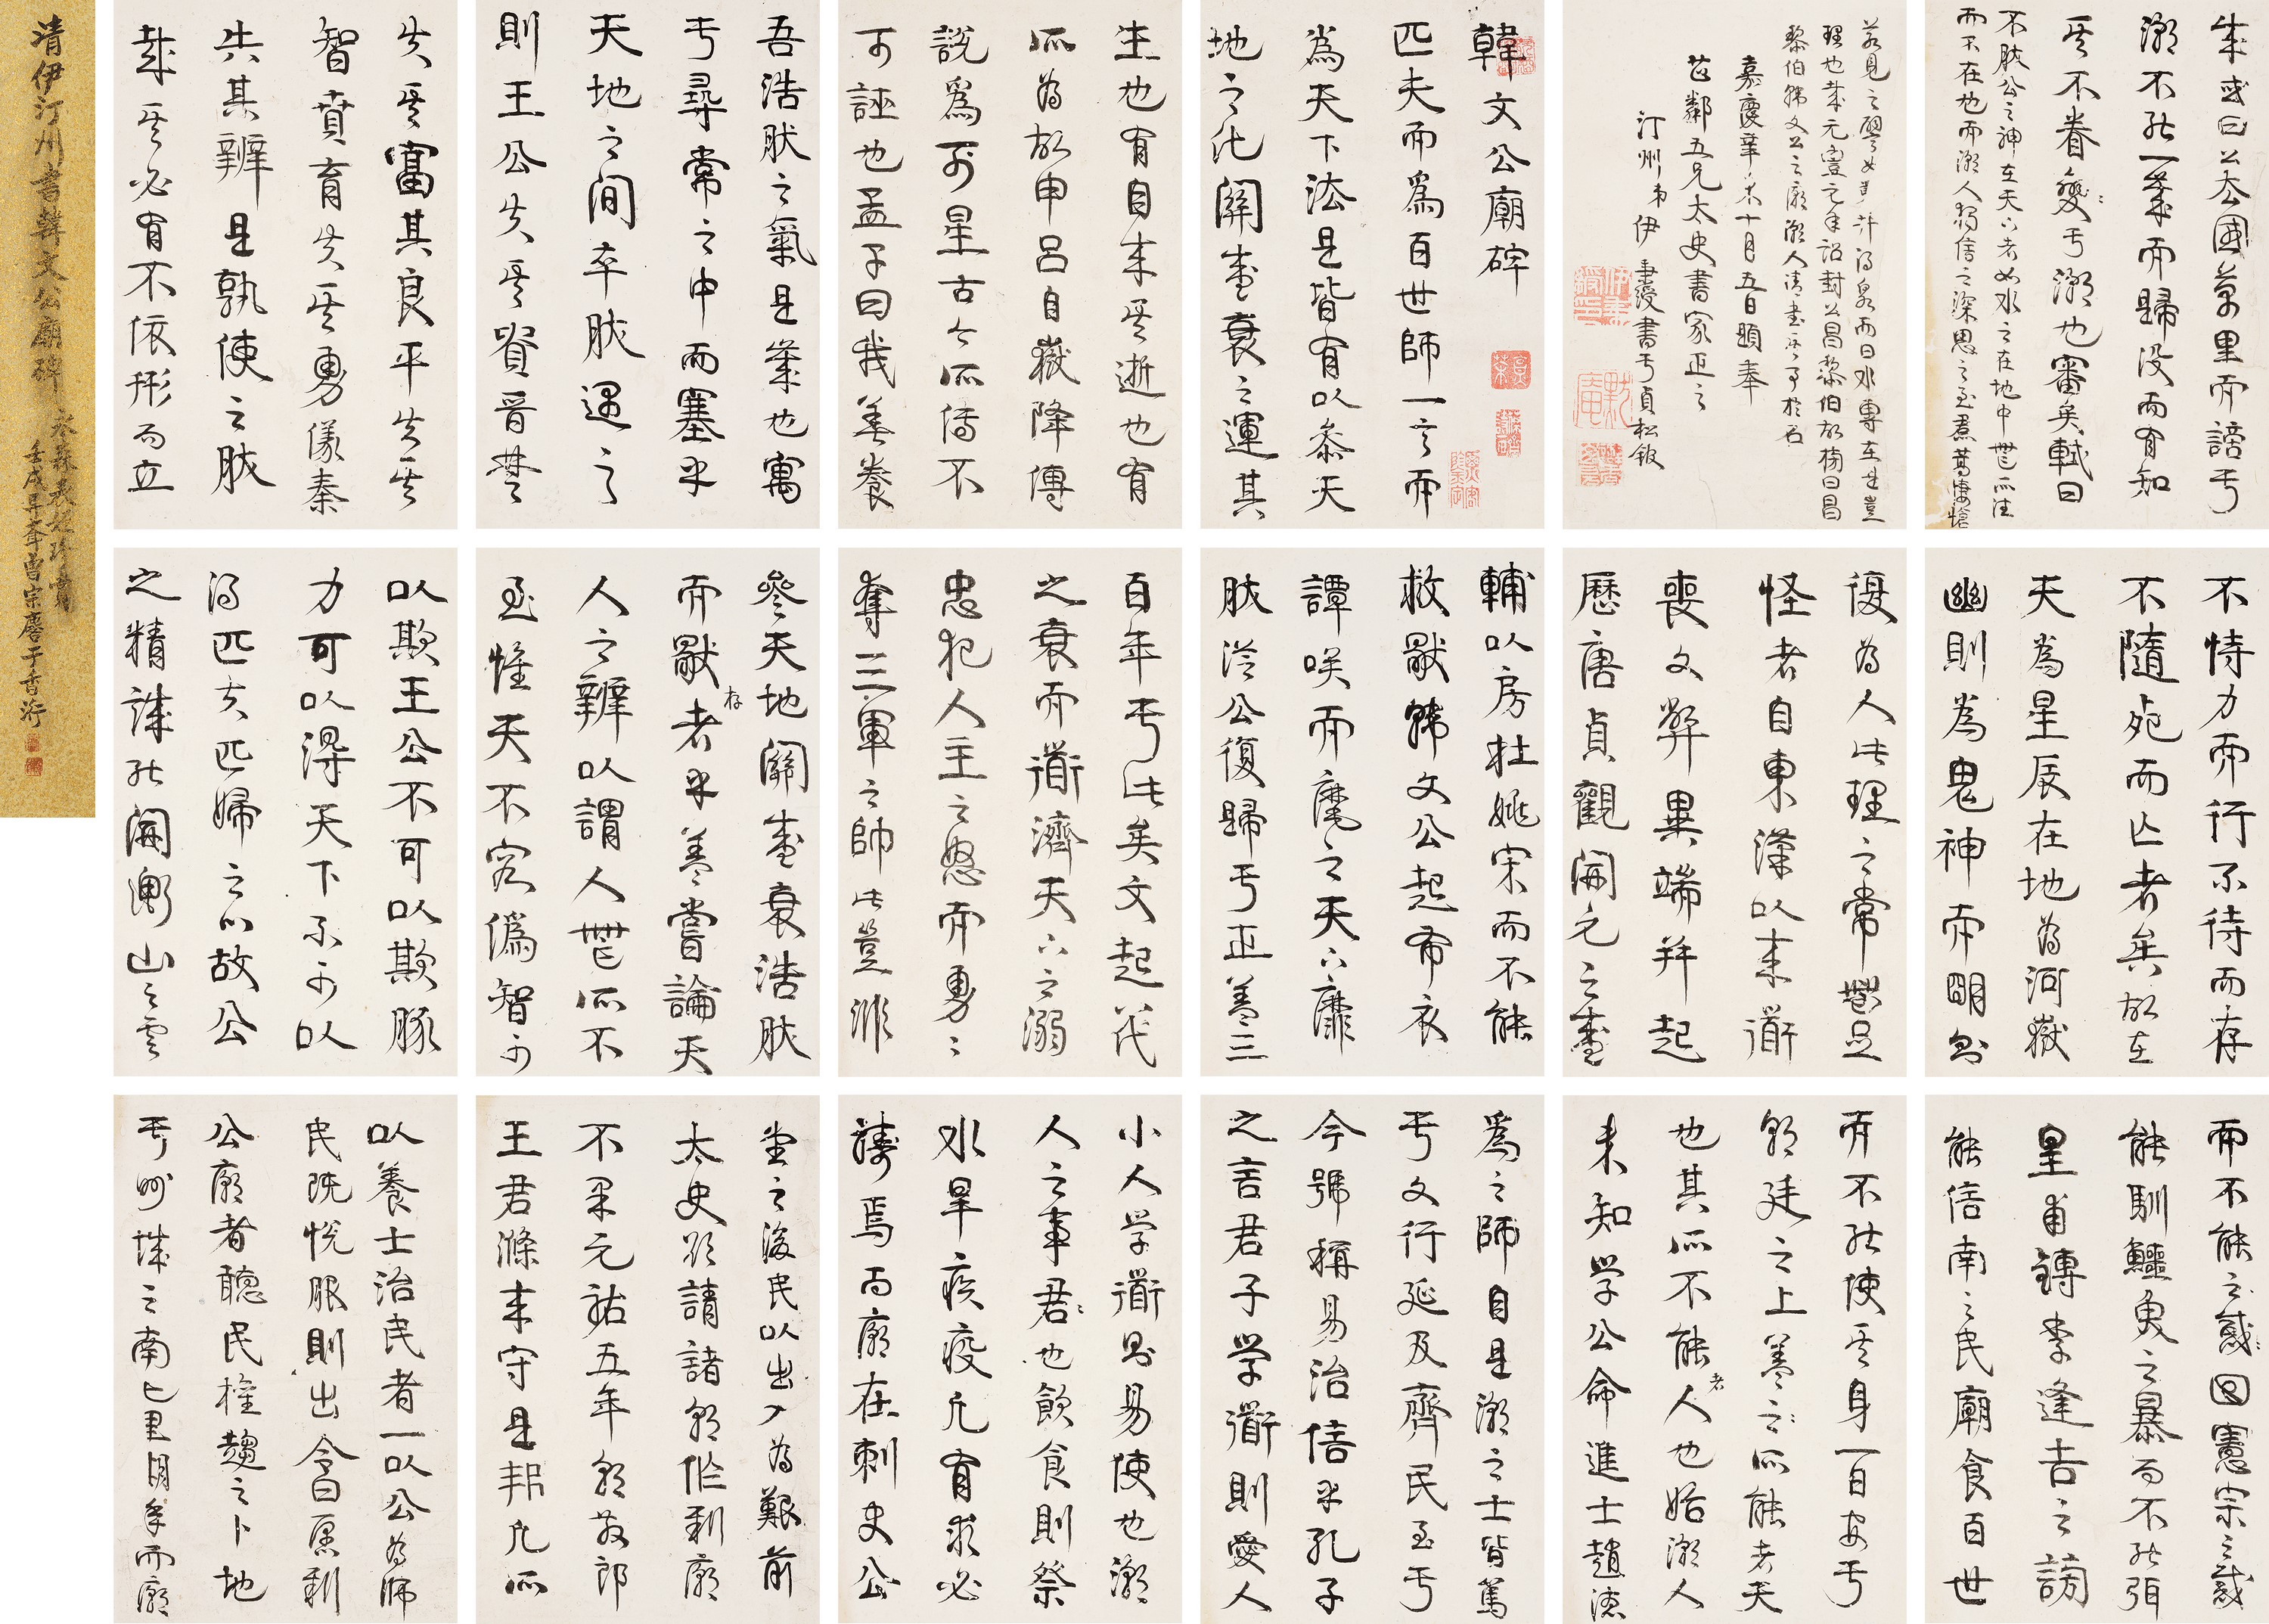 清伊汀州書韓文公廟碑
韓文公廟碑
匹夫而為百世師一言而
為天下法是皆有以參天
地之化關盛衰之運其
生也有自來其逝也有
所為故申呂自嶽降傅
說為列星古今所傳不
可誣也孟子曰我善養
吾浩然之氣是氣也寓
于尋常之中而塞乎
天地之間卒然遇之
則王公失其貴晉楚
失其富其良平失其
智賁育失其勇儀秦
失其辨是孰使之然
哉其必有不依形而立
不恃力而行不待而存
不隨死而亡者矣故在
天為星辰在地為河嶽
幽則為鬼神而明則
復為人此理之常無足
怪者自東漢以來道
喪文弊異端並起
歷唐貞觀開元之盛
輔以房杜姚宋而不能
救獨韓文公起布衣
談笑而麾之天下靡
然從公復歸于正蓋三
百年于此矣文起八代
之衰而道濟天下之溺
忠犯人主之怒而勇〻
奪三軍之帥此豈非
參天地關盛衰浩然
而獨存者乎蓋嘗論天
人之辨以謂人無所不
至惟天不容偽智可
以欺王公不可以欺豚
力可以得天下不可以
得匹夫匹婦之心故公
之精誠能開衡山之雲
而不能之惑回憲宗之惑
能馴鱷魚之暴而不能弭
皇甫鎛李逢吉之謗
能信南之民廟食百世
而不能使其身一日安于
朝廷之上蓋之所能者天
也其所不能者人也始潮人
未知學公命進士趙德
為之師自是潮之士皆篤
于文行延及齊民至于
今號稱易治信乎孔子
之言君子學道則愛人
小人學道則易使也潮
人之事君也飲食則祭
水旱疾疫凡有求必
禱焉而廟在刺史公
堂之後民以出入為艱前
太史欲請諸朝作新廟
不果元祐五年朝散郎
王君滌來守是邦凡所
以養士治民者一以公為師
民既悅服則出令曰願新
公廟者聽民讙趨之卜地
于州城之南七里期年而廟
成或曰公去國萬里而謫于
潮不能一歲而歸沒而有知
其不眷戀于潮也審矣軾曰
不然公之神在天下者如水之在地中無所往
而不在也而潮人獨信之深思之至焄蒿悽愴
若見之譬如鑿井得泉而曰水專在是豈
理也哉元豐元年詔封公昌黎伯故榜曰昌
黎伯韓文公之廟潮人請書其事於石
嘉慶辛未十月五日題奉
芷鄰五兄太史書家正之
汀州弟伊秉綬書于貞松